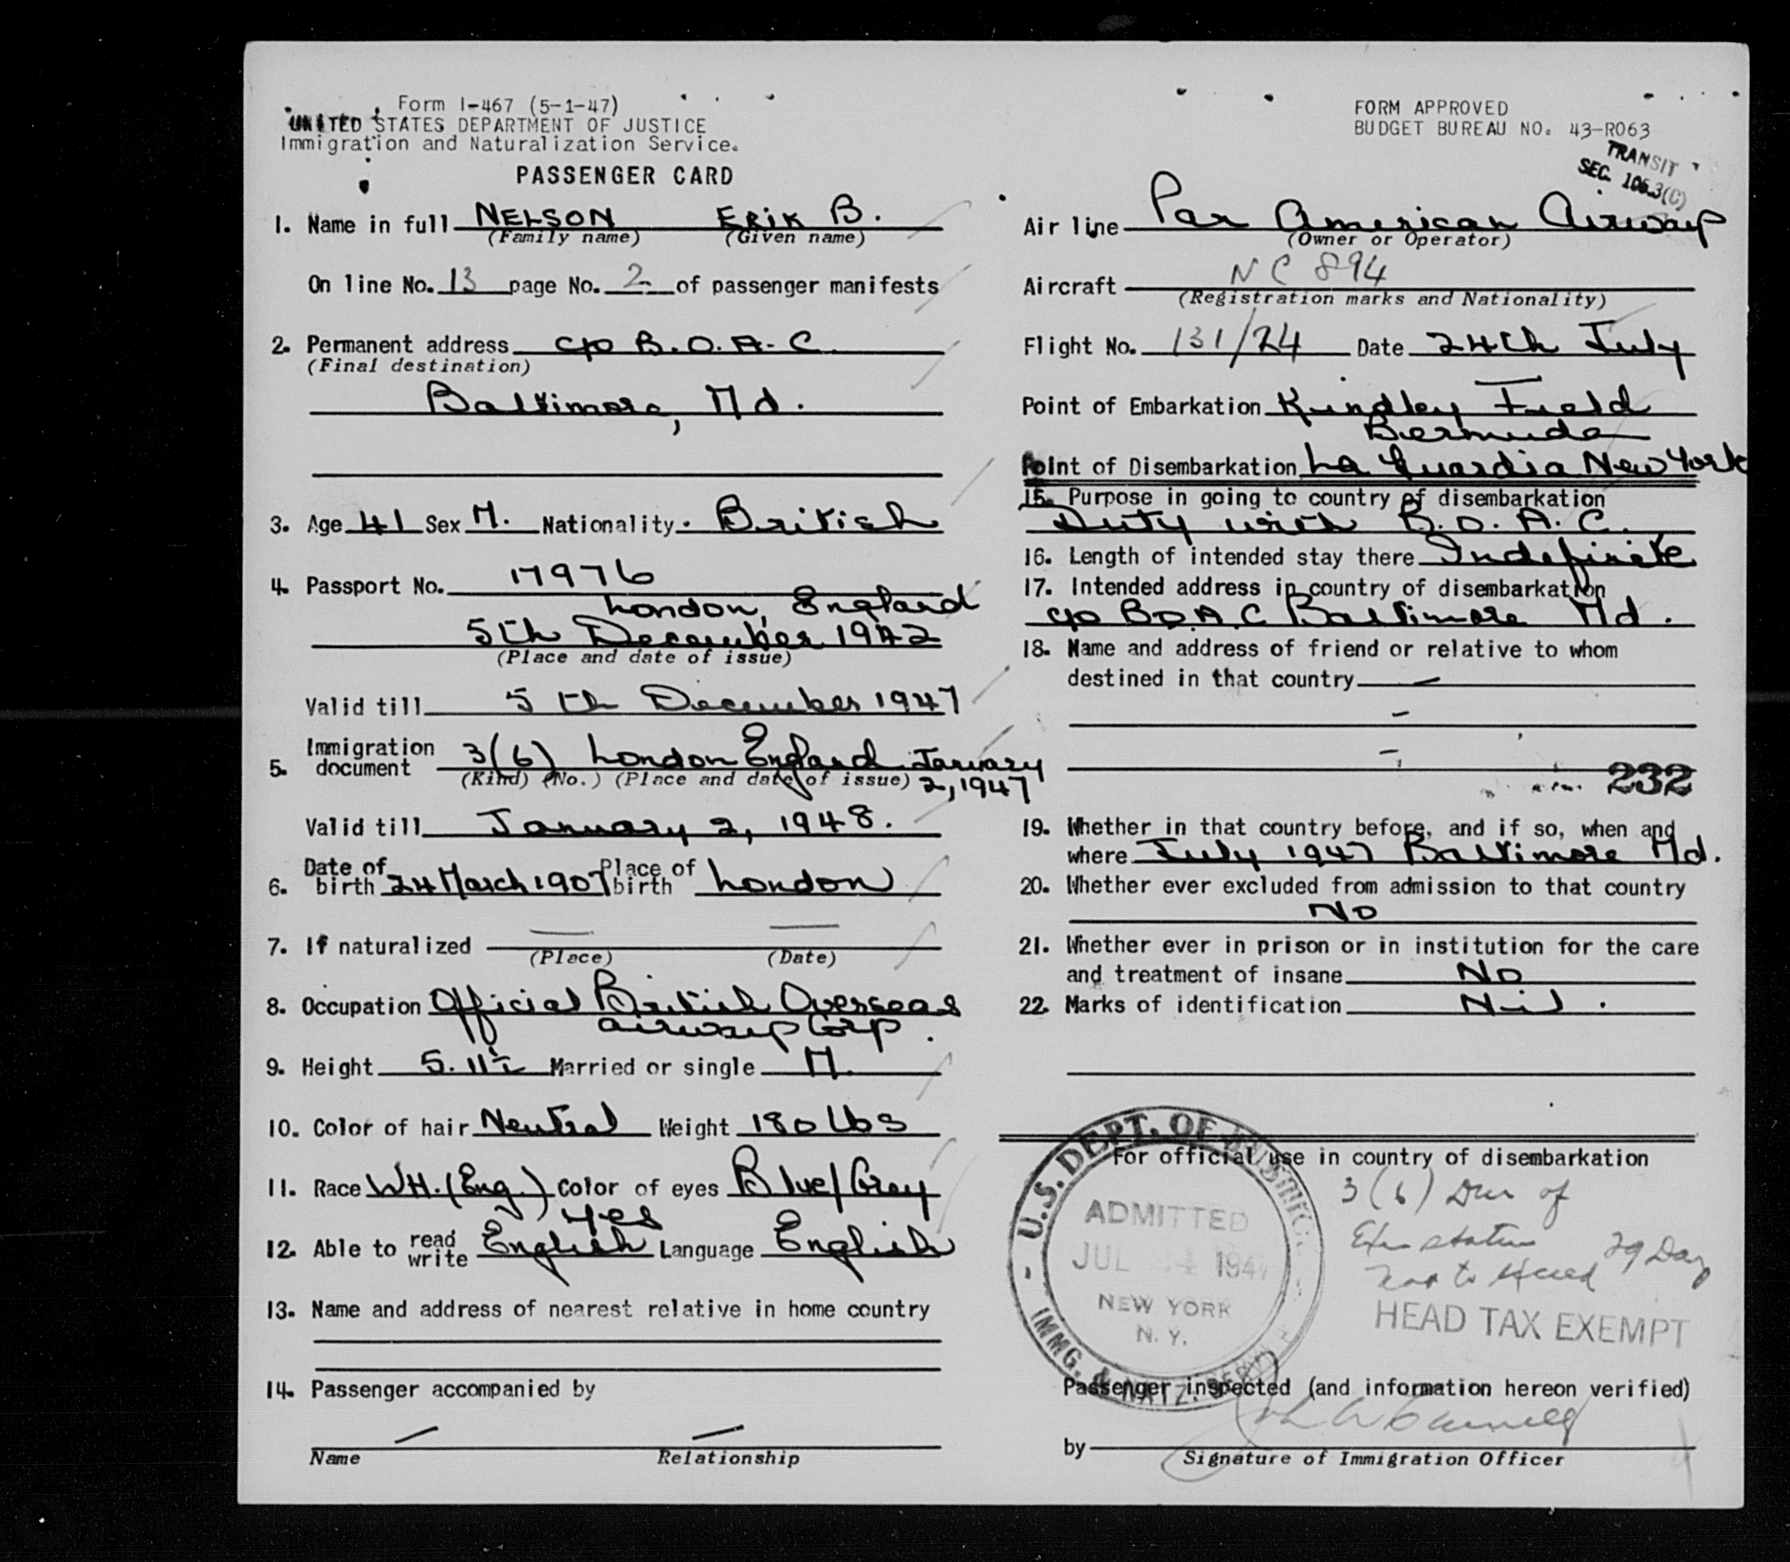 Form I-467 (5-1-47)
UNITED STATES DEPARTMENT OF JUSTICE
Immigration and Naturalization Service.
PASSENGER CARD
1. Name in full NELSON ERIK B.
(Family name) (Given name)
On line No. 13 page No. 2 of passenger manifests
2. Permanent address c/o B.O.A.C
(Final destination)
Baltimore, Md.
3. Age 41 Sex M. Nationality. British
4. Passport No. 17976
London, England
5th December 1942
(Place and date of issue)
Valid till 5th December 1947
5. Immigration document 3(6) London England January
(Kind) (No.) (Place and date of issue) 2, 1947
Valid till January 2, 1948.
6. Date of birth 24 March 1907 Place of birth London
7. If naturalized — —
(Place) (Date)
8. Occupation Official British Overseas
Airways Corp.
9. Height 5.11½ Married or single M.
10. Color of hair Neutral Weight 180 lbs
11. Race WH.(Eng.) Color of eyes Blue/Grey
yes
12. Able to read write English Language English
13. Name and address of nearest relative in home country
14. Passenger accompanied by
— —
Name Relationship
FORM APPROVED
BUDGET BUREAU NO. 43-R063
TRANSIT
SEC. 106.3(C)
Air line Pan American Airways
(Owner or Operator)
Aircraft NC 894
(Registration marks and Nationality)
Flight No. 131/24 Date 24th July
Point of Embarkation Kindley Field
Bermuda
Point of Disembarkation La Guardia New York
15. Purpose in going to country of disembarkation
Duty with B.O.A.C.
16. Length of intended stay there Indefinite
17. Intended address in country of disembarkation
c/o B.O.A.C Baltimore Md.
18. Name and address of friend or relative to whom
destined in that country —
—
—
232
19. Whether in that country before, and if so, when and
where July 1947 Baltimore Md.
20. Whether ever excluded from admission to that country
No
21. Whether ever in prison or in institution for the care
and treatment of insane No
22. Marks of identification Nil.
For official use in country of disembarkation
3(6) Dur of
29 Day
HEAD TAX EXEMPT
U.S. DEPT. OF JUSTICE
ADMITTED
JUL 1947
NEW YORK
N. Y.
IMMG. & NATZ. SERVICE
Passenger inspected (and information hereon verified)
by
Signature of Immigration Officer